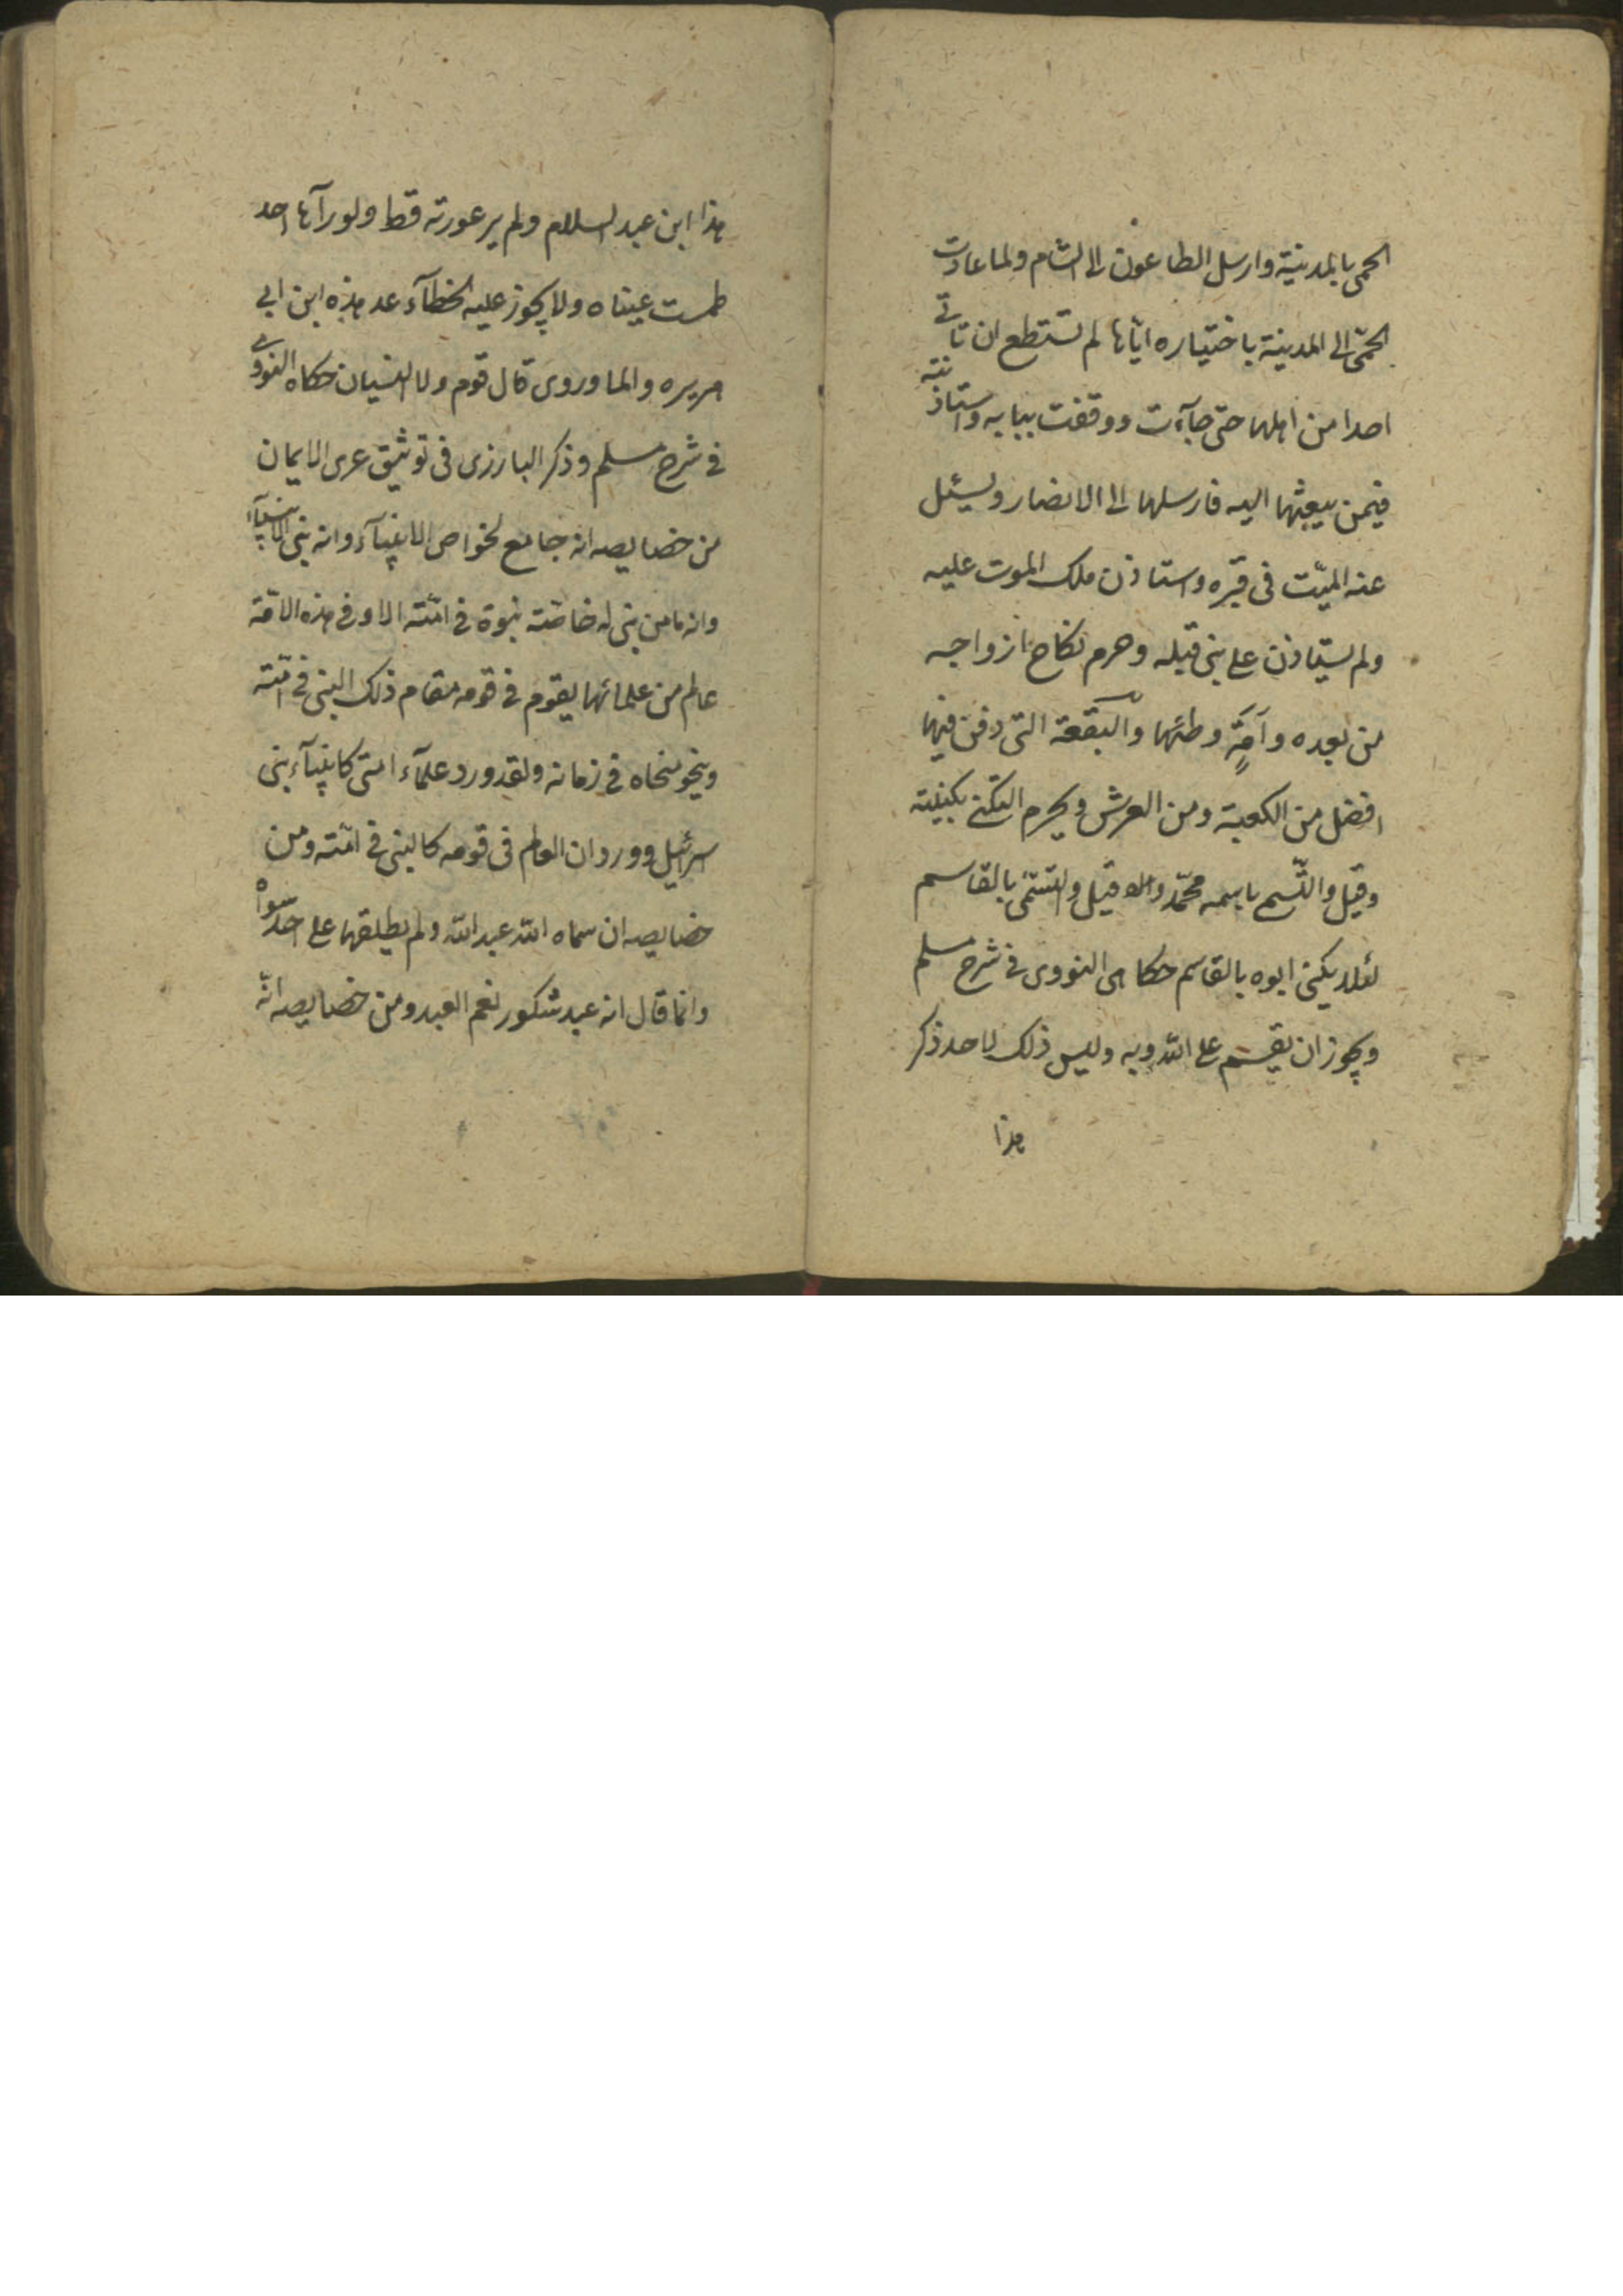 الحمى بالمدينة وارسل الطاعون الى الشام ولما عادت
الحمّى الى المدينة باختياره ايّاها لم تستطع ان تاتى
احدا من اهلها حتى جآءت ووقفت ببابه واستاذنته
فيمن يبعثها اليه فارسلها الى الانصار ويسئل
عنه الميّت فى قبره واستاذن ملك الموت عليه
ولم يستاذن على نبى قبله وحرم نكاح ازواجه
من بعده وآمَةٍ وطئها والبقعة التى دفن فيها
افضل من الكعبة ومن العرش ويحرم التكنى بكنيته
وقيل والتّسم باسمه محمّد وقيل والتسمّى بالقاسم
لئلا يكنى ابوه بالقاسم حكاهى النووى فى شرح مسلم
ويجوز ان يقسم على الله وبه وليس ذلك لاحد ذكر
هذا
هذا ابن عبد السلام ولم ير عورته قط ولو رآها احد
طمست عيناه ولا يجوز عليه الخطآء عد هذه ابن ابى
هريره والماوروى قال قوم ولا النسيان حكاه النووى
فى شرح مسلم وذكر البارزى فى توثيق عرى الايمان
من خصايصه انه جامع لخواص الانبيآء وانه نبى الانبيآء
وانه ما من نبى له خاصّة نبوة فى امّته الا وفى هذه الامّة
عالم من علمائها يقوم فى قومه مقام ذلك النبى فى امّته
وينحو منحاه فى زمانه ولقد ورد علمآء امتى كانبيآء بنى
اسرائيل وورد ان العالم فى قومه كالنبى فى امّته ومن
خصايصه ان سماه الله عبد الله ولم يطلقها على احد سواه
وانما قال انه عبد شكور نعم العبد ومن خصايصه انّه